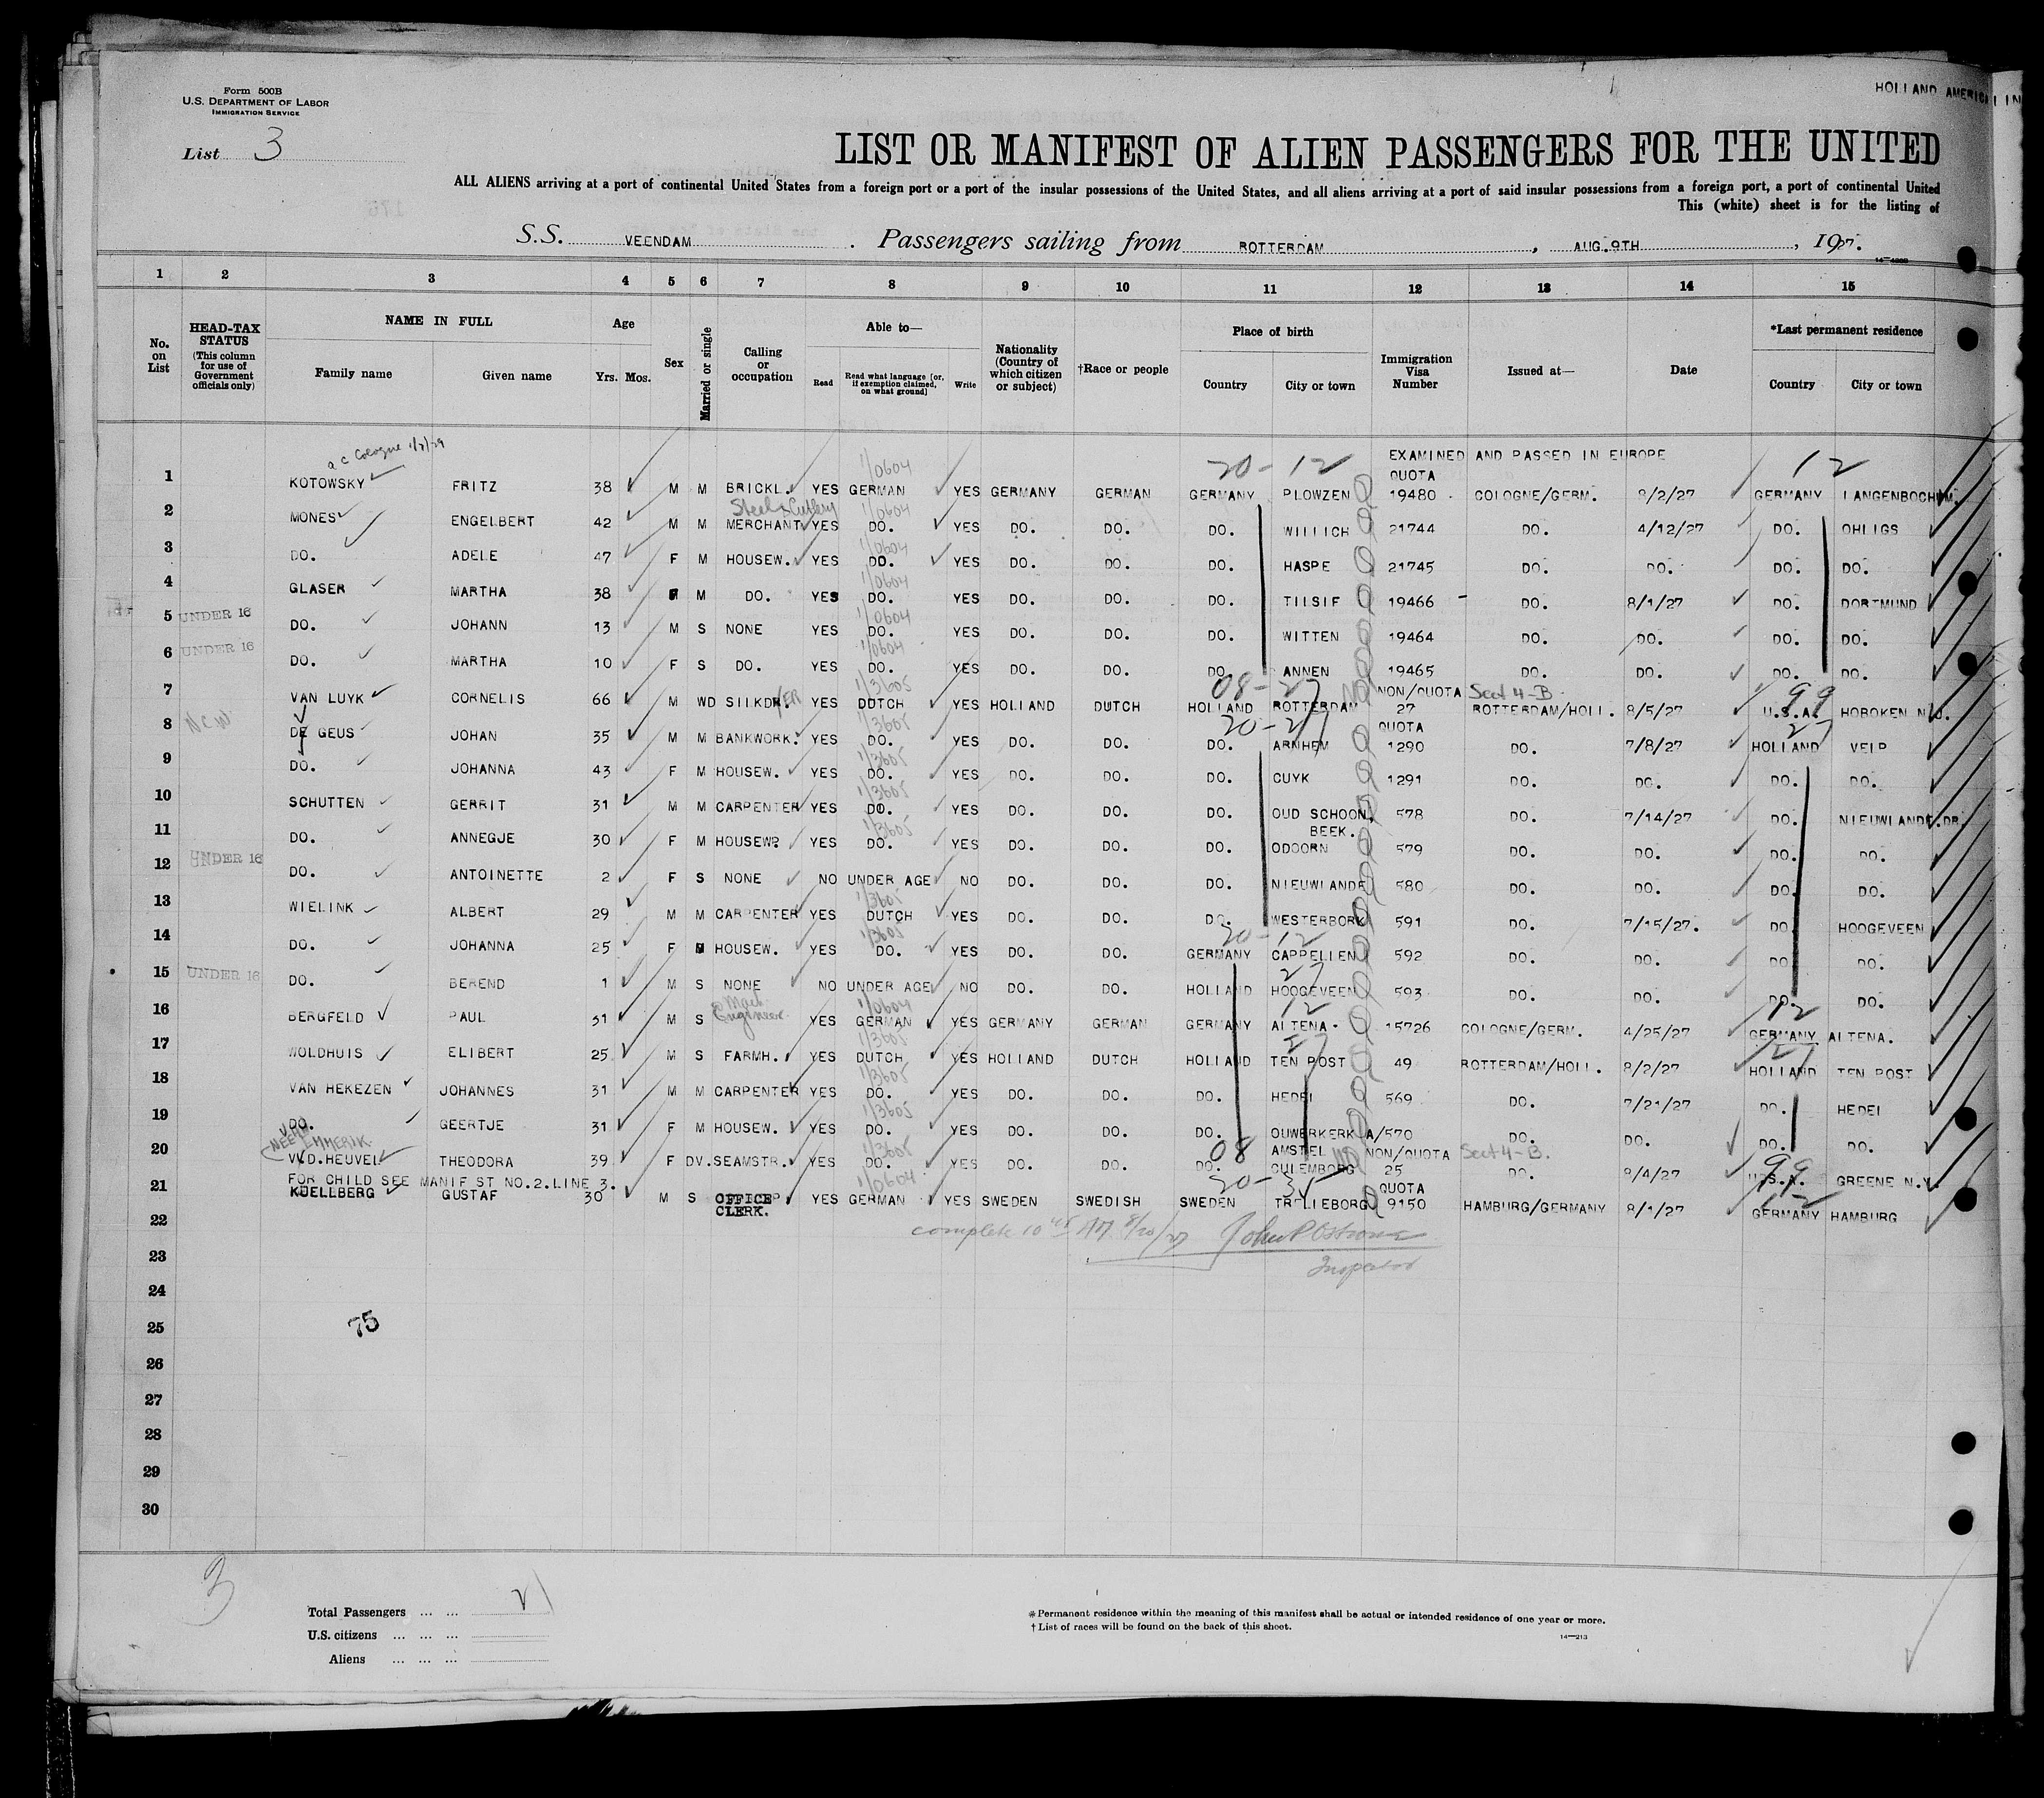 HOLLAND AMERICA LIN
Form 500B
U.S. DEPARTMENT OF LABOR
IMMIGRATION SERVICE
List 3
LIST OR MANIFEST OF ALIEN PASSENGERS FOR THE UNITED
ALL ALIENS arriving at a port of continental United States from a foreign port or a port of the insular possessions of the United States, and all aliens arriving at a port of said insular possessions from a foreign port, a port of continental United
This (white) sheet is for the listing of
S.S. VEENDAM. Passengers sailing from ROTTERDAM, AUG.9TH, 1927.
14-4223
1 2 3 4 5 6 7 8 9 10 11 12 13 14 15
No. on List
HEAD-TAX STATUS (This column for use of Government officials only)
NAME IN FULL Family name Given name
Age Yrs. Mos.
Sex
Married or single
Calling or occupation
Able to— Read Read what language [or, if exemption claimed, on what ground] Write
Nationality (Country of which citizen or subject)
†Race or people
Place of birth Country City or town
Immigration Visa Number
Issued at—
Date
*Last permanent residence Country City or town
a c Cologne
20-12 EXAMINED AND PASSED IN EUROPE 12
1/0604 QUOTA
1 KOTOWSKY FRITZ 38 M M BRICKL. YES GERMAN YES GERMANY GERMAN GERMANY PLOWZEN 19480 COLOGNE/GERM. 8/2/27 GERMANY LANGENBOCHUM.
Steel & Cutlery 1/0604
2 MONES ENGELBERT 42 M M MERCHANT YES DO. YES DO. DO. DO. WILLICH 21744 DO. 4/12/27 DO. OHLIGS
1/0604
3 DO. ADELE 47 F M HOUSEW. YES DO. YES DO. DO. DO. HASPE 21745 DO. DO. DO. DO.
1/0604
4 GLASER MARTHA 38 F M DO. YES DO. YES DO. DO. DO. TILSIF 19466 DO. 8/1/27 DO. DORTMUND
1/0604
5 UNDER 16 DO. JOHANN 13 M S NONE YES DO. YES DO. DO. DO. WITTEN 19464 DO. DO. DO. DO.
1/0604
6 UNDER 16 DO. MARTHA 10 F S DO. YES DO. YES DO. DO. DO. ANNEN 19465 DO. DO. DO. DO.
1/3605 08-27 NON/QUOTA Sect 4-B 99
7 VAN LUYK CORNELIS 66 M WD SILKDR. YES DUTCH YES HOLLAND DUTCH HOLLAND ROTTERDAM 27 ROTTERDAM/HOLL. 8/5/27 U.S.A. HOBOKEN N.J.
1/3605 20-27 QUOTA 27
8 DE GEUS JOHAN 35 M M BANKWORK. YES DO. YES DO. DO. DO. ARNHEM 1290 DO. 7/8/27 HOLLAND VELP
1/3605
9 DO. JOHANNA 43 F M HOUSEW. YES DO. YES DO. DO. DO. CUYK 1291 DO. DO. DO. DO.
1/3605
10 SCHUTTEN GERRIT 31 M M CARPENTER YES DO. YES DO. DO. DO. OUD SCHOON BEEK. 578 DO. 7/14/27 DO. NIEUWLANDE.DR.
1/3605
11 DO. ANNEGJE 30 F M HOUSEW. YES DO. YES DO. DO. DO. ODOORN 579 DO. DO. DO. DO.
12 UNDER 16 DO. ANTOINETTE 2 F S NONE NO UNDER AGE NO DO. DO. DO. NIEUWLANDE 580 DO. DO. DO. DO.
1/3605
13 WIELINK ALBERT 29 M M CARPENTER YES DUTCH YES DO. DO. DO. WESTERBORK 591 DO. 7/15/27. DO. HOOGEVEEN
1/3605 20-12
14 DO. JOHANNA 25 F M HOUSEW. YES DO. YES DO. DO. GERMANY CAPPELLEN 592 DO. DO. DO. DO.
27
15 UNDER 16 DO. BEREND 1 M S NONE NO UNDER AGE NO DO. DO. HOLLAND HOOGEVEEN 593 DO. DO. DO. DO.
1/0604 12 12
16 BERGFELD PAUL 31 M S Engineer YES GERMAN YES GERMANY GERMAN GERMANY ALTENA. 15726 COLOGNE/GERM. 4/25/27 GERMANY ALTENA.
1/3605 27 27
17 WOLDHUIS ELIBERT 25 M S FARMH. YES DUTCH YES HOLLAND DUTCH HOLLAND TEN POST 49 ROTTERDAM/HOLL. 8/2/27 HOLLAND TEN POST
1/3605
18 VAN HEKEZEN JOHANNES 31 M M CARPENTER YES DO. YES DO. DO. DO. HEDEL 569 DO. 7/21/27 DO. HEDEL
1/3605
19 DO. GEERTJE 31 F M HOUSEW. YES DO. YES DO. DO. DO. OUWERKERK A/ AMSTEL 570 DO. DO. DO. DO.
EMMERIK 1/3605 08 NON/QUOTA Sect 4-B. 99
20 V.D.HEUVEL THEODORA 39 F DV. SEAMSTR. YES DO. YES DO. DO. DO. CULEMBORG 25 DO. 8/4/27 U.S.A. GREENE N.Y.
FOR CHILD SEE MANIF ST NO.2.LINE 3.
1/0604 20-35 QUOTA 12
21 KJELLBERG GUSTAF 30 M S OFFICE CLERK. YES GERMAN YES SWEDEN SWEDISH SWEDEN TRELLEBORG 9150 HAMBURG/GERMANY 8/1/27 GERMANY HAMBURG
22 complete 10 45 AM 8/20/27
Inspector
23
24
25 75
26
27
28
29
30
3
Total Passengers ... ... 21
U.S. citizens ... ... ...
Aliens ... ... ...
*Permanent residence within the meaning of this manifest shall be actual or intended residence of one year or more.
†List of races will be found on the back of this sheet.
14-213